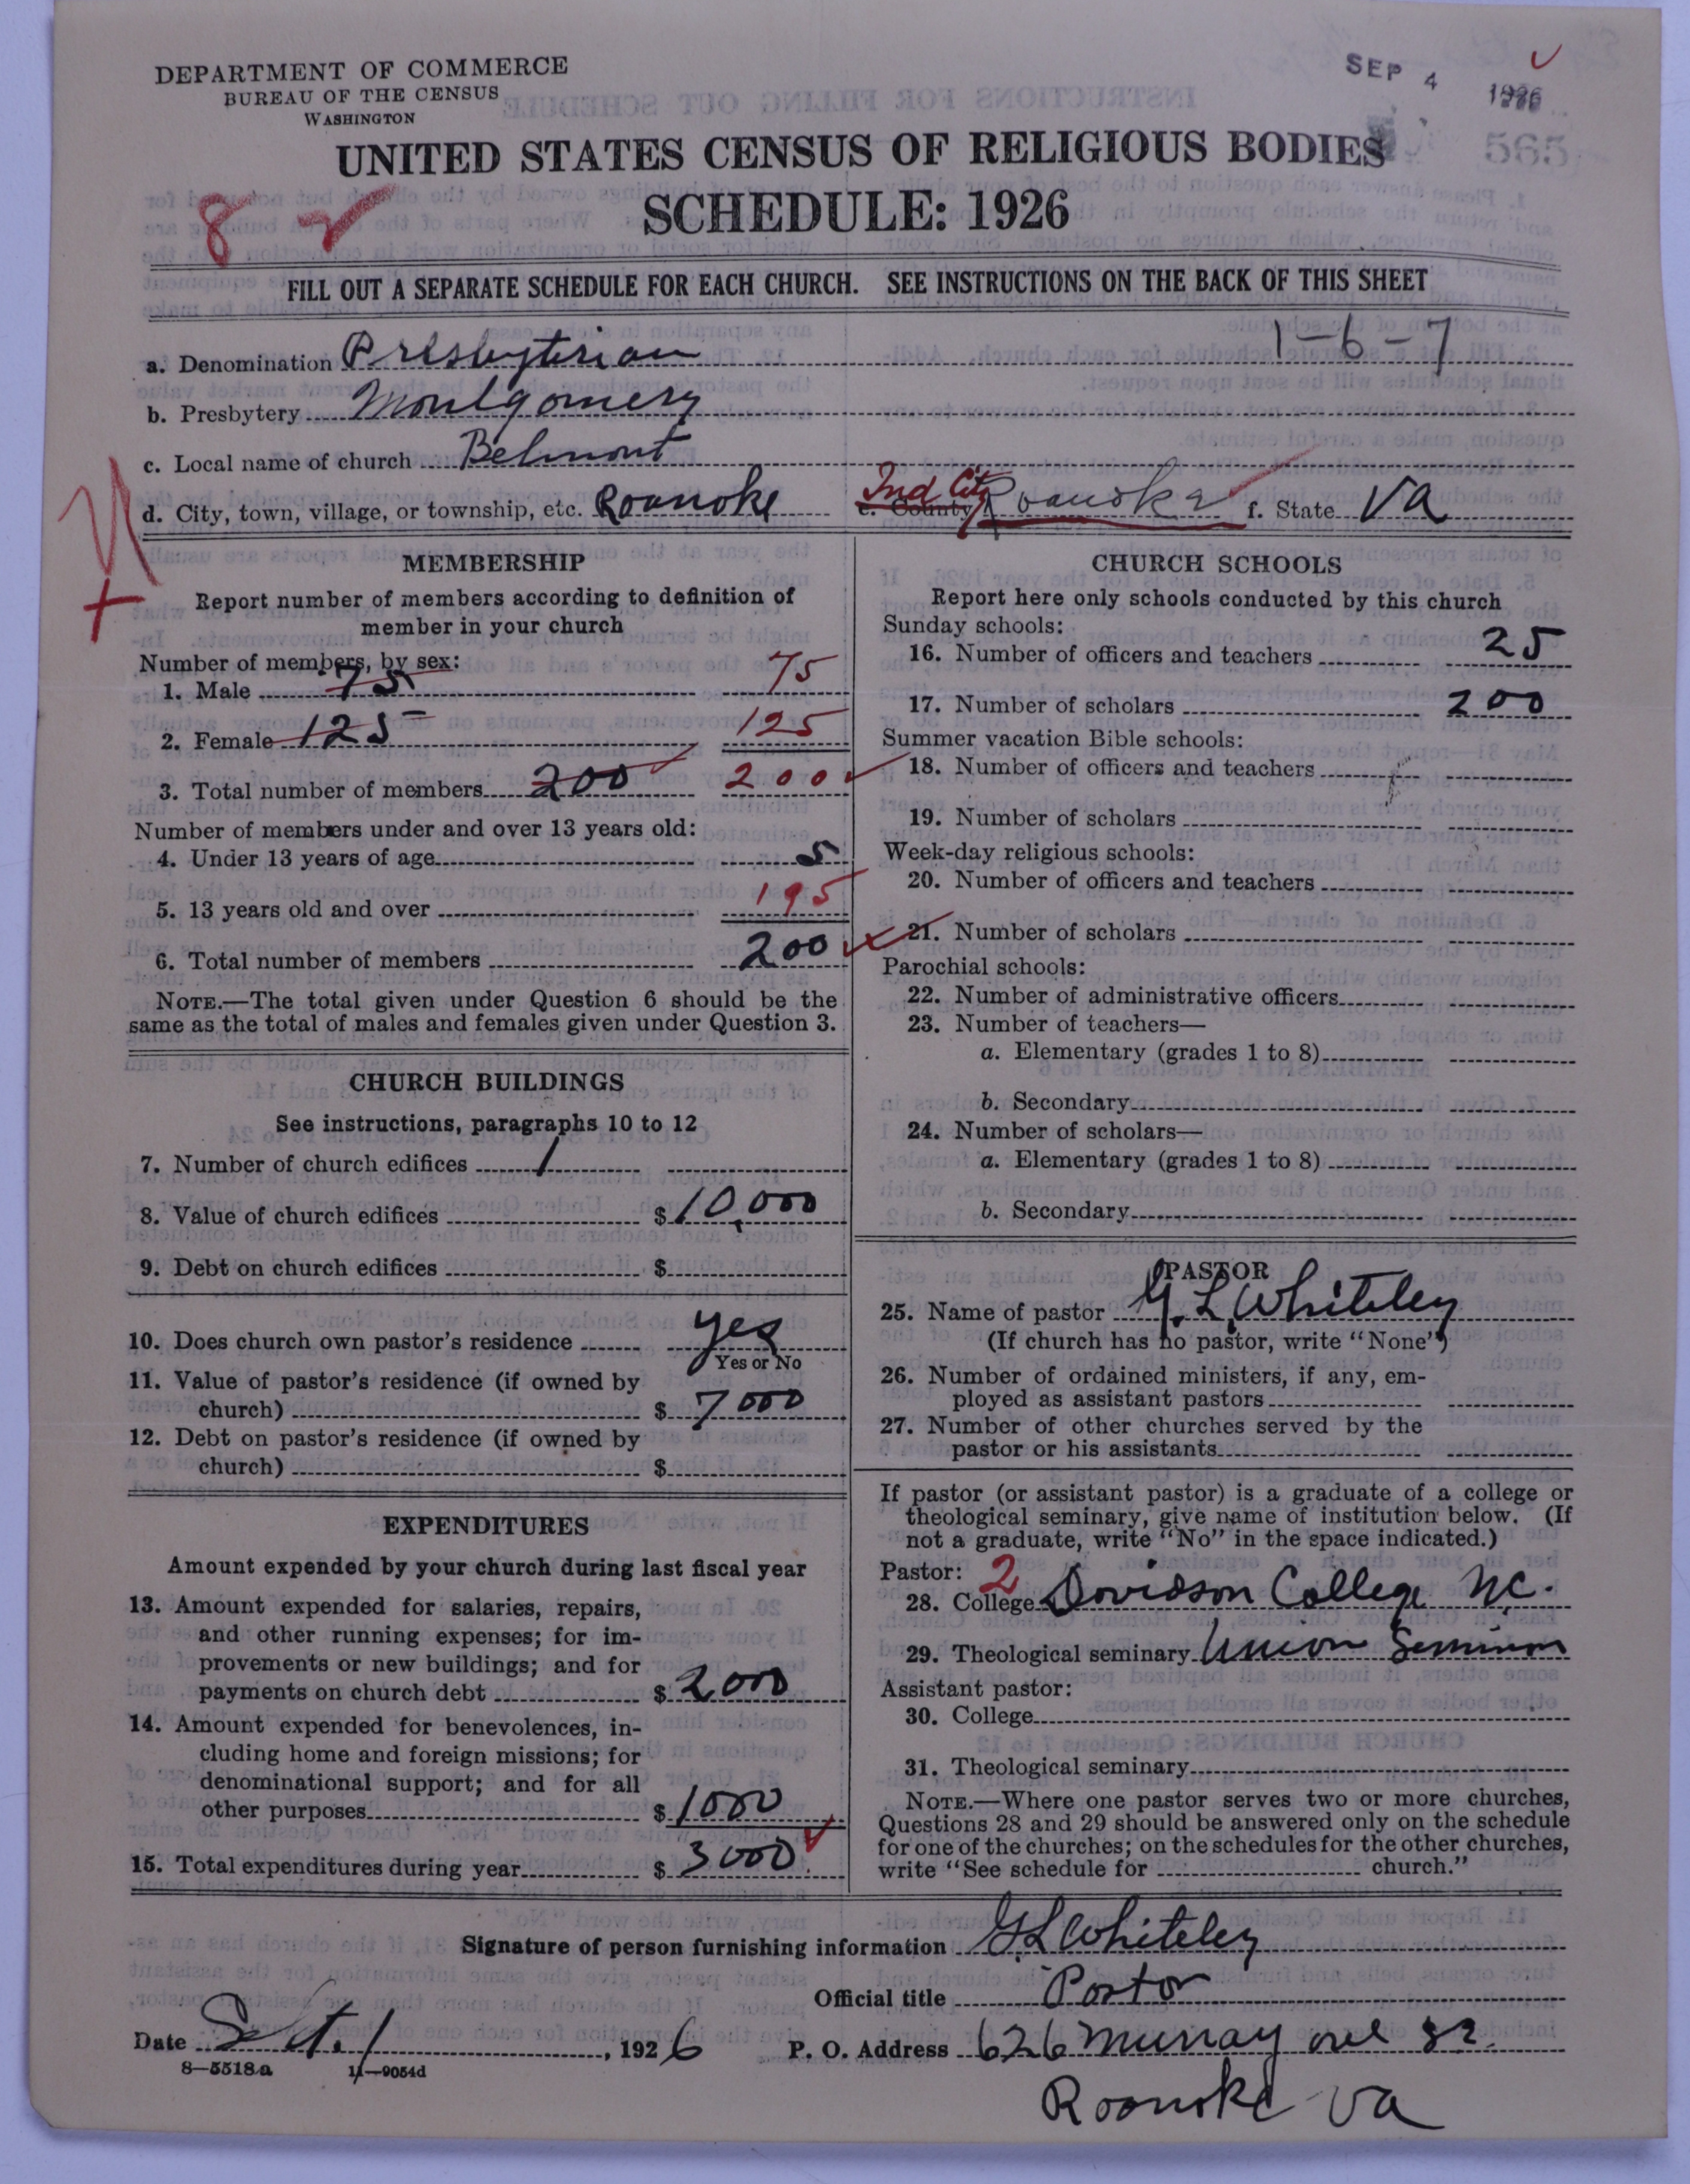 DEPARTMENT OF COMMERCE
BUREAU OF THE CENSUS
WASHINGTON
SEP 4 1926
565
UNITED STATES CENSUS OF RELIGIOUS BODIES
SCHEDULE: 1926
8
FILL OUT A SEPARATE SCHEDULE FOR EACH CHURCH. SEE INSTRUCTIONS ON THE BACK OF THIS SHEET
a. Denomination Presbyterian 1-6-7
b. Presbytery Montgomery
c. Local name of church Belmont
d. City, town, village, or township, etc. Roanoke Ind City e. County Roanoke f. State Va
MEMBERSHIP
Report number of members according to definition of
member in your church
Number of members, by sex:
1. Male 75 75
2. Female 125 125
3. Total number of members 200 200
Number of members under and over 13 years old:
4. Under 13 years of age 5
5. 13 years old and over 195
6. Total number of members 200
NOTE.—The total given under Question 6 should be the
same as the total of males and females given under Question 3.
CHURCH BUILDINGS
See instructions, paragraphs 10 to 12
7. Number of church edifices 1
8. Value of church edifices $ 10,000
9. Debt on church edifices $
10. Does church own pastor's residence yes
Yes or No
11. Value of pastor's residence (if owned by
church) $ 7000
12. Debt on pastor's residence (if owned by
church) $
EXPENDITURES
Amount expended by your church during last fiscal year
13. Amount expended for salaries, repairs,
and other running expenses; for im-
provements or new buildings; and for
payments on church debt $ 2000
14. Amount expended for benevolences, in-
cluding home and foreign missions; for
denominational support; and for all
other purposes $ 1000
15. Total expenditures during year $ 3000
CHURCH SCHOOLS
Report here only schools conducted by this church
Sunday schools:
16. Number of officers and teachers 25
17. Number of scholars 200
Summer vacation Bible schools:
18. Number of officers and teachers
19. Number of scholars
Week-day religious schools:
20. Number of officers and teachers
21. Number of scholars
Parochial schools:
22. Number of administrative officers
23. Number of teachers—
a. Elementary (grades 1 to 8)
b. Secondary
24. Number of scholars—
a. Elementary (grades 1 to 8)
b. Secondary
PASTOR
25. Name of pastor G. L. Whiteley
(If church has no pastor, write "None")
26. Number of ordained ministers, if any, em-
ployed as assistant pastors
27. Number of other churches served by the
pastor or his assistants
If pastor (or assistant pastor) is a graduate of a college or
theological seminary, give name of institution below. (If
not a graduate, write "No" in the space indicated.)
Pastor: 2
28. College Davidson College N.C.
29. Theological seminary Union Seminary
Assistant pastor:
30. College
31. Theological seminary
NOTE.—Where one pastor serves two or more churches,
Questions 28 and 29 should be answered only on the schedule
for one of the churches; on the schedules for the other churches,
write "See schedule for church."
Signature of person furnishing information G L Whiteley
Official title Pastor
Date Sept. 1, 1926 P. O. Address 626 Murray ave SE.
8—5518a 11—9054d
Roanoke Va